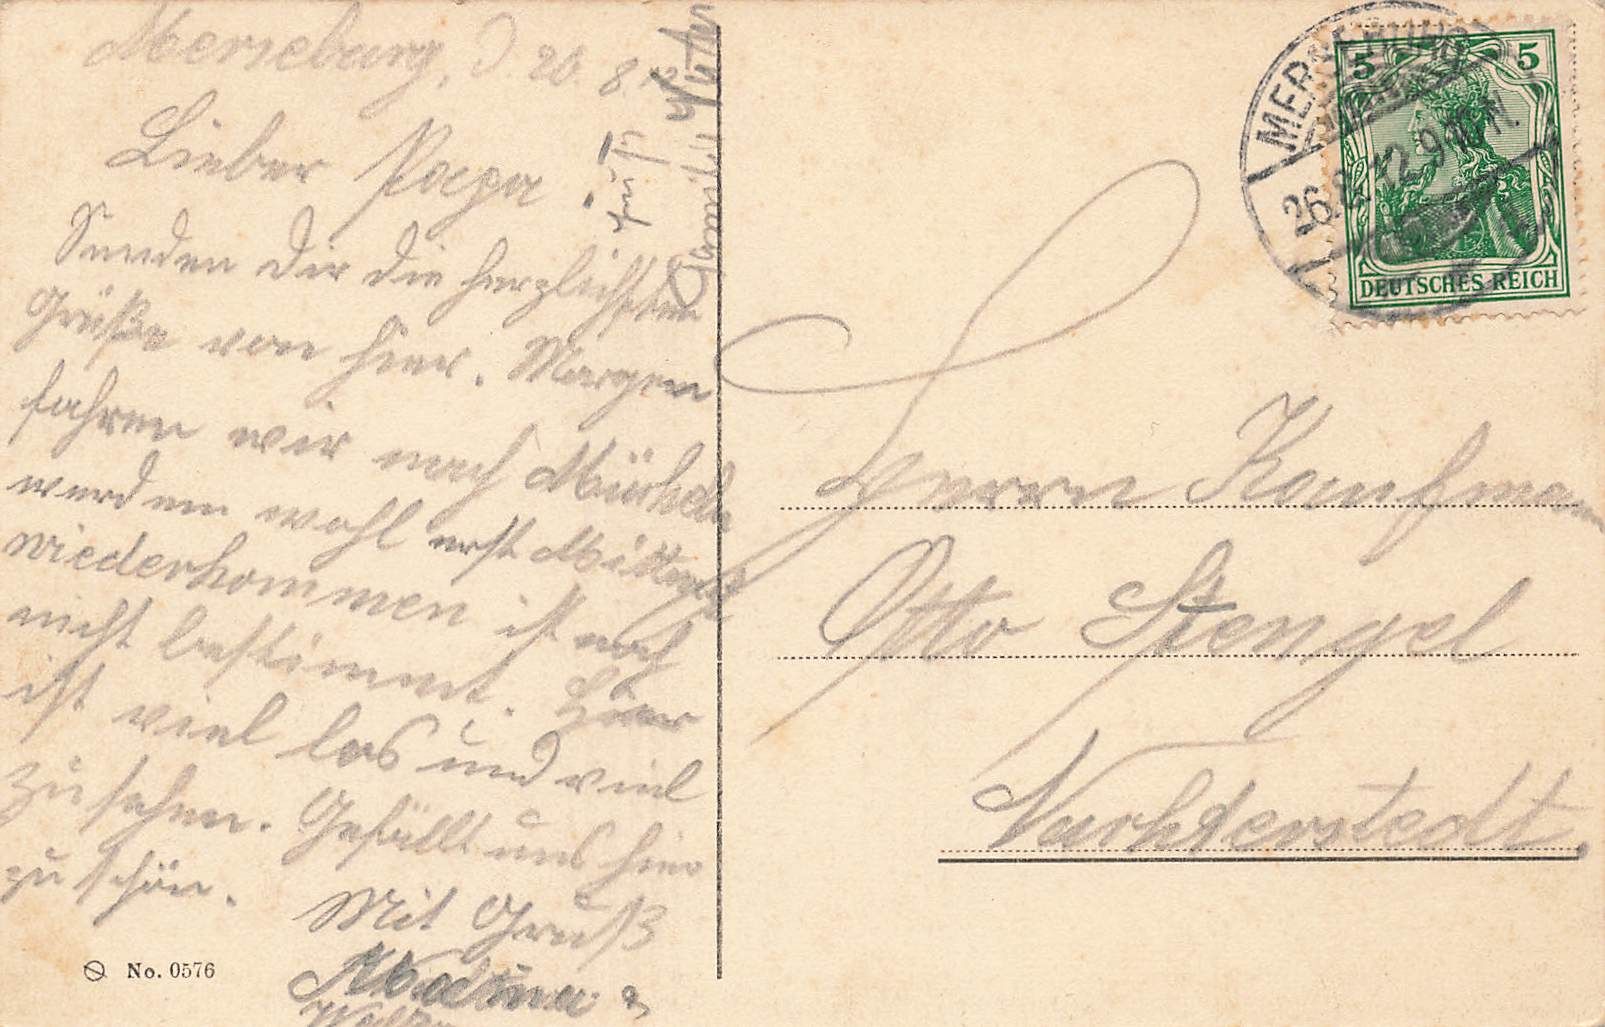 Merseburg, d. 26. 8. 12
Lieber Papa!
Senden Dir die herzlichsten
Grüße von hier. Morgen
fahren wir nach Mücheln
werden wohl erst Mittwoch
wiederkommen ist noch
nicht bestimmt. Hier
ist viel los und viel
zu sehen. Gefällt uns hier
zu schön.
Mit Gruß
No. 0576
MERSEBURG
26.8.12.9-10V.
5 5
DEUTSCHES REICH
Herrn Kaufmann
Otto Stengel
Nachterstedt.